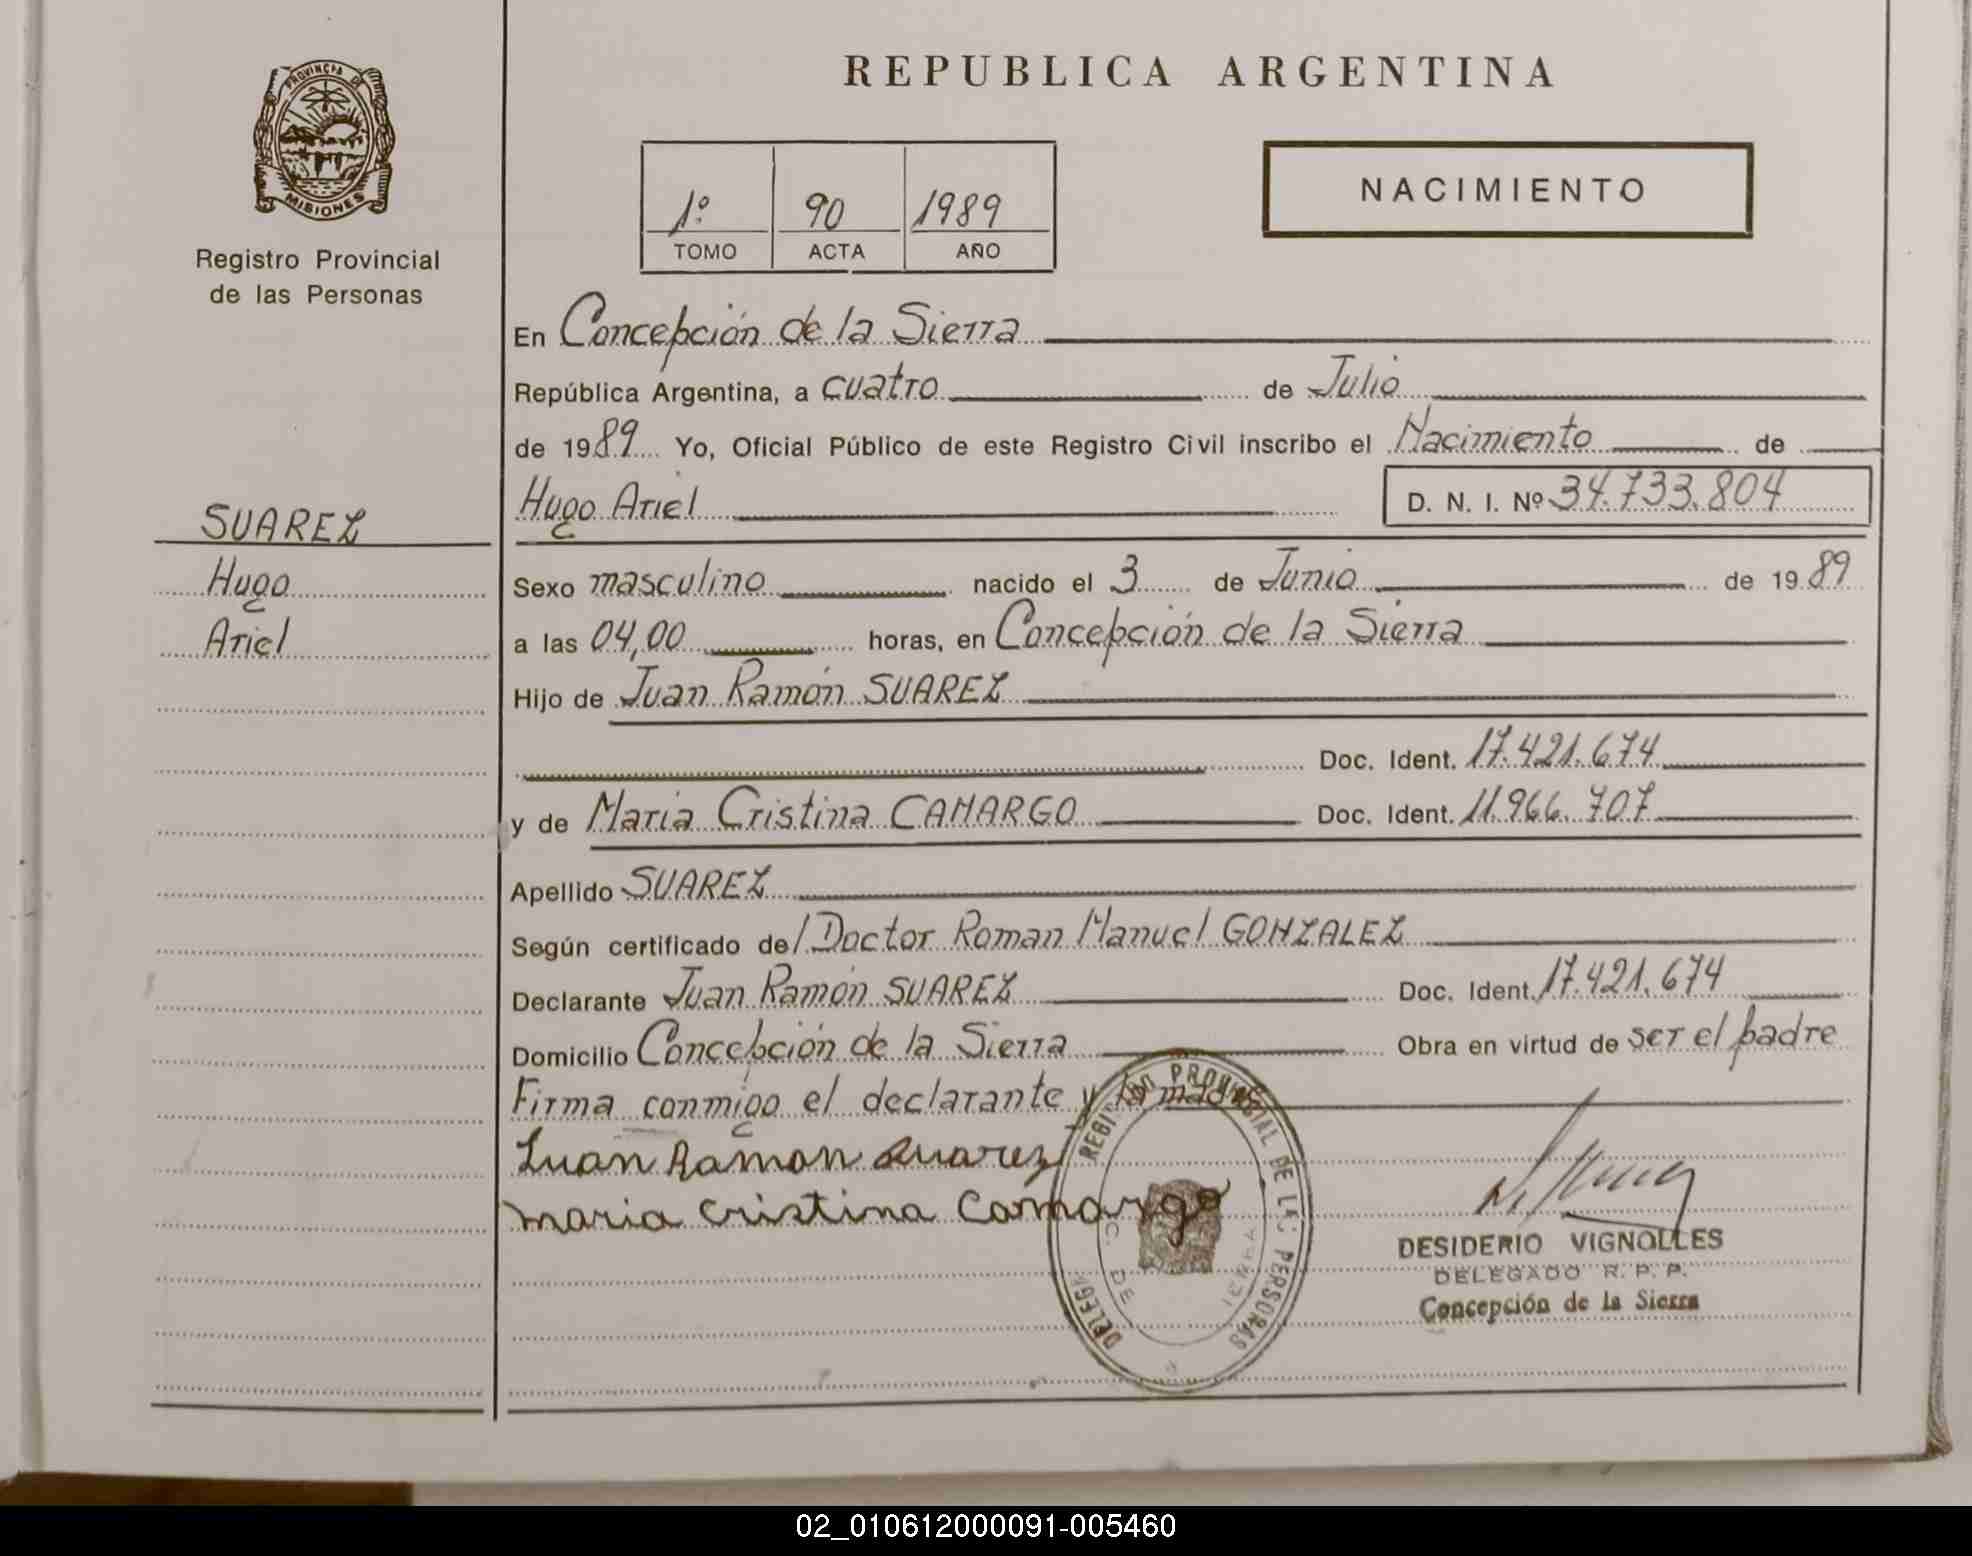 PROVINCIA DE
MISIONES
Registro Provincial
de las Personas
REPUBLICA ARGENTINA
1º 90 1989
TOMO ACTA AÑO
NACIMIENTO
En Concepción de la Sierra
República Argentina, a cuatro de Julio
de 1989 Yo, Oficial Público de este Registro Civil inscribo el Nacimiento de
Hugo Ariel D. N. I. Nº 34.733.804
SUAREZ
Hugo
Ariel
Sexo masculino nacido el 3 de Junio de 1989
a las 04,00 horas, en Concepción de la Sierra
Hijo de Juan Ramón SUAREZ
Doc. Ident. 17.421.674
y de Maria Cristina CAMARGO Doc. Ident. 11.966.707
Apellido SUAREZ
Según certificado del Doctor Roman Manuel GONZALEZ
Declarante Juan Ramón SUAREZ Doc. Ident. 17.421.674
Domicilio Concepción de la Sierra Obra en virtud de ser el padre
Firma conmigo el declarante y la madre
Juan Ramon Suarez
maria cristina Camargo
PROVINCIAL DE LAS PERSONAS
DESIDERIO VIGNOLLES
DELEGADO R. P. P.
Concepción de la Sierra
02_010612000091-005460